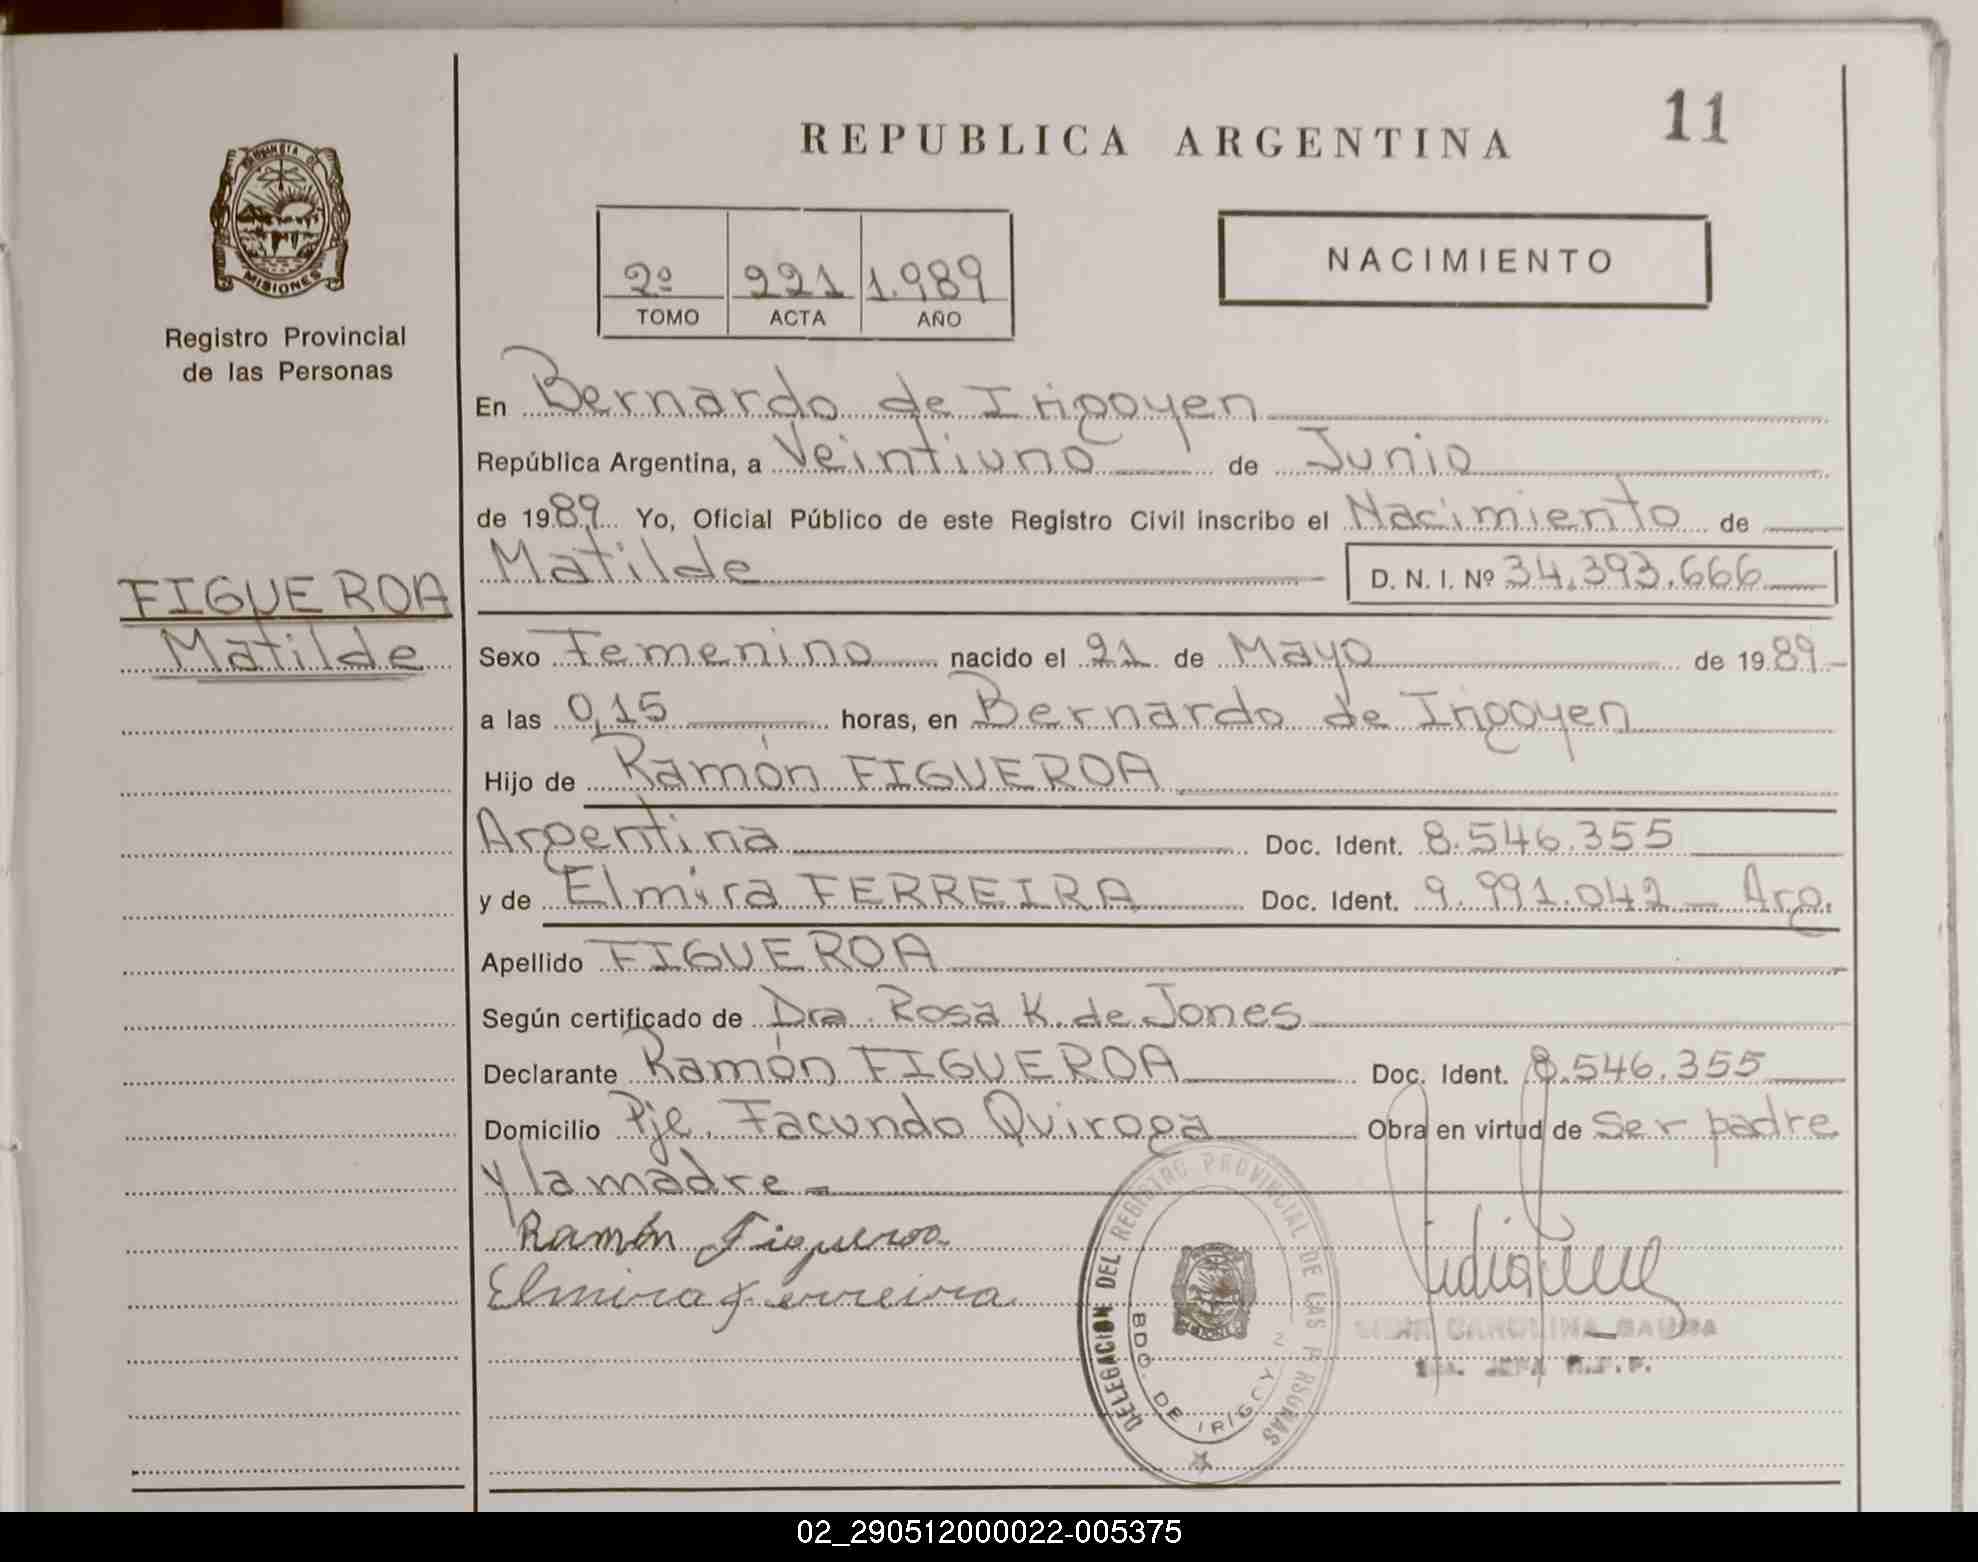 11
REPUBLICA ARGENTINA
PROVINCIA DE
MISIONES
Registro Provincial
de las Personas
2º 221 1.989
TOMO ACTA AÑO
NACIMIENTO
En Bernardo de Irigoyen
República Argentina, a Veintiuno de Junio
de 1989 Yo, Oficial Público de este Registro Civil inscribo el Nacimiento de
Matilde D. N. I. Nº 34.393.666
FIGUEROA
Matilde
Sexo Femenino nacido el 21 de Mayo de 1989
a las 0,15 horas, en Bernardo de Irigoyen
Hijo de Ramón FIGUEROA
Argentina Doc. Ident. 8.546.355
y de Elmira FERREIRA Doc. Ident. 9.991.042 - Arg.
Apellido FIGUEROA
Según certificado de Dra. Rosa K. de Jones
Declarante Ramón FIGUEROA Doc. Ident. 8.546.355
Domicilio Pje. Facundo Quiroga Obra en virtud de Ser padre
y la madre -
Ramón Figueroa
Elmira Ferreira
DELEGACION DEL REGISTRO PROVINCIAL DE LAS PERSONAS
BDO. DE IRIGOY
MISIONES
CAROLINA
JEFA R.P.P.
02_290512000022-005375